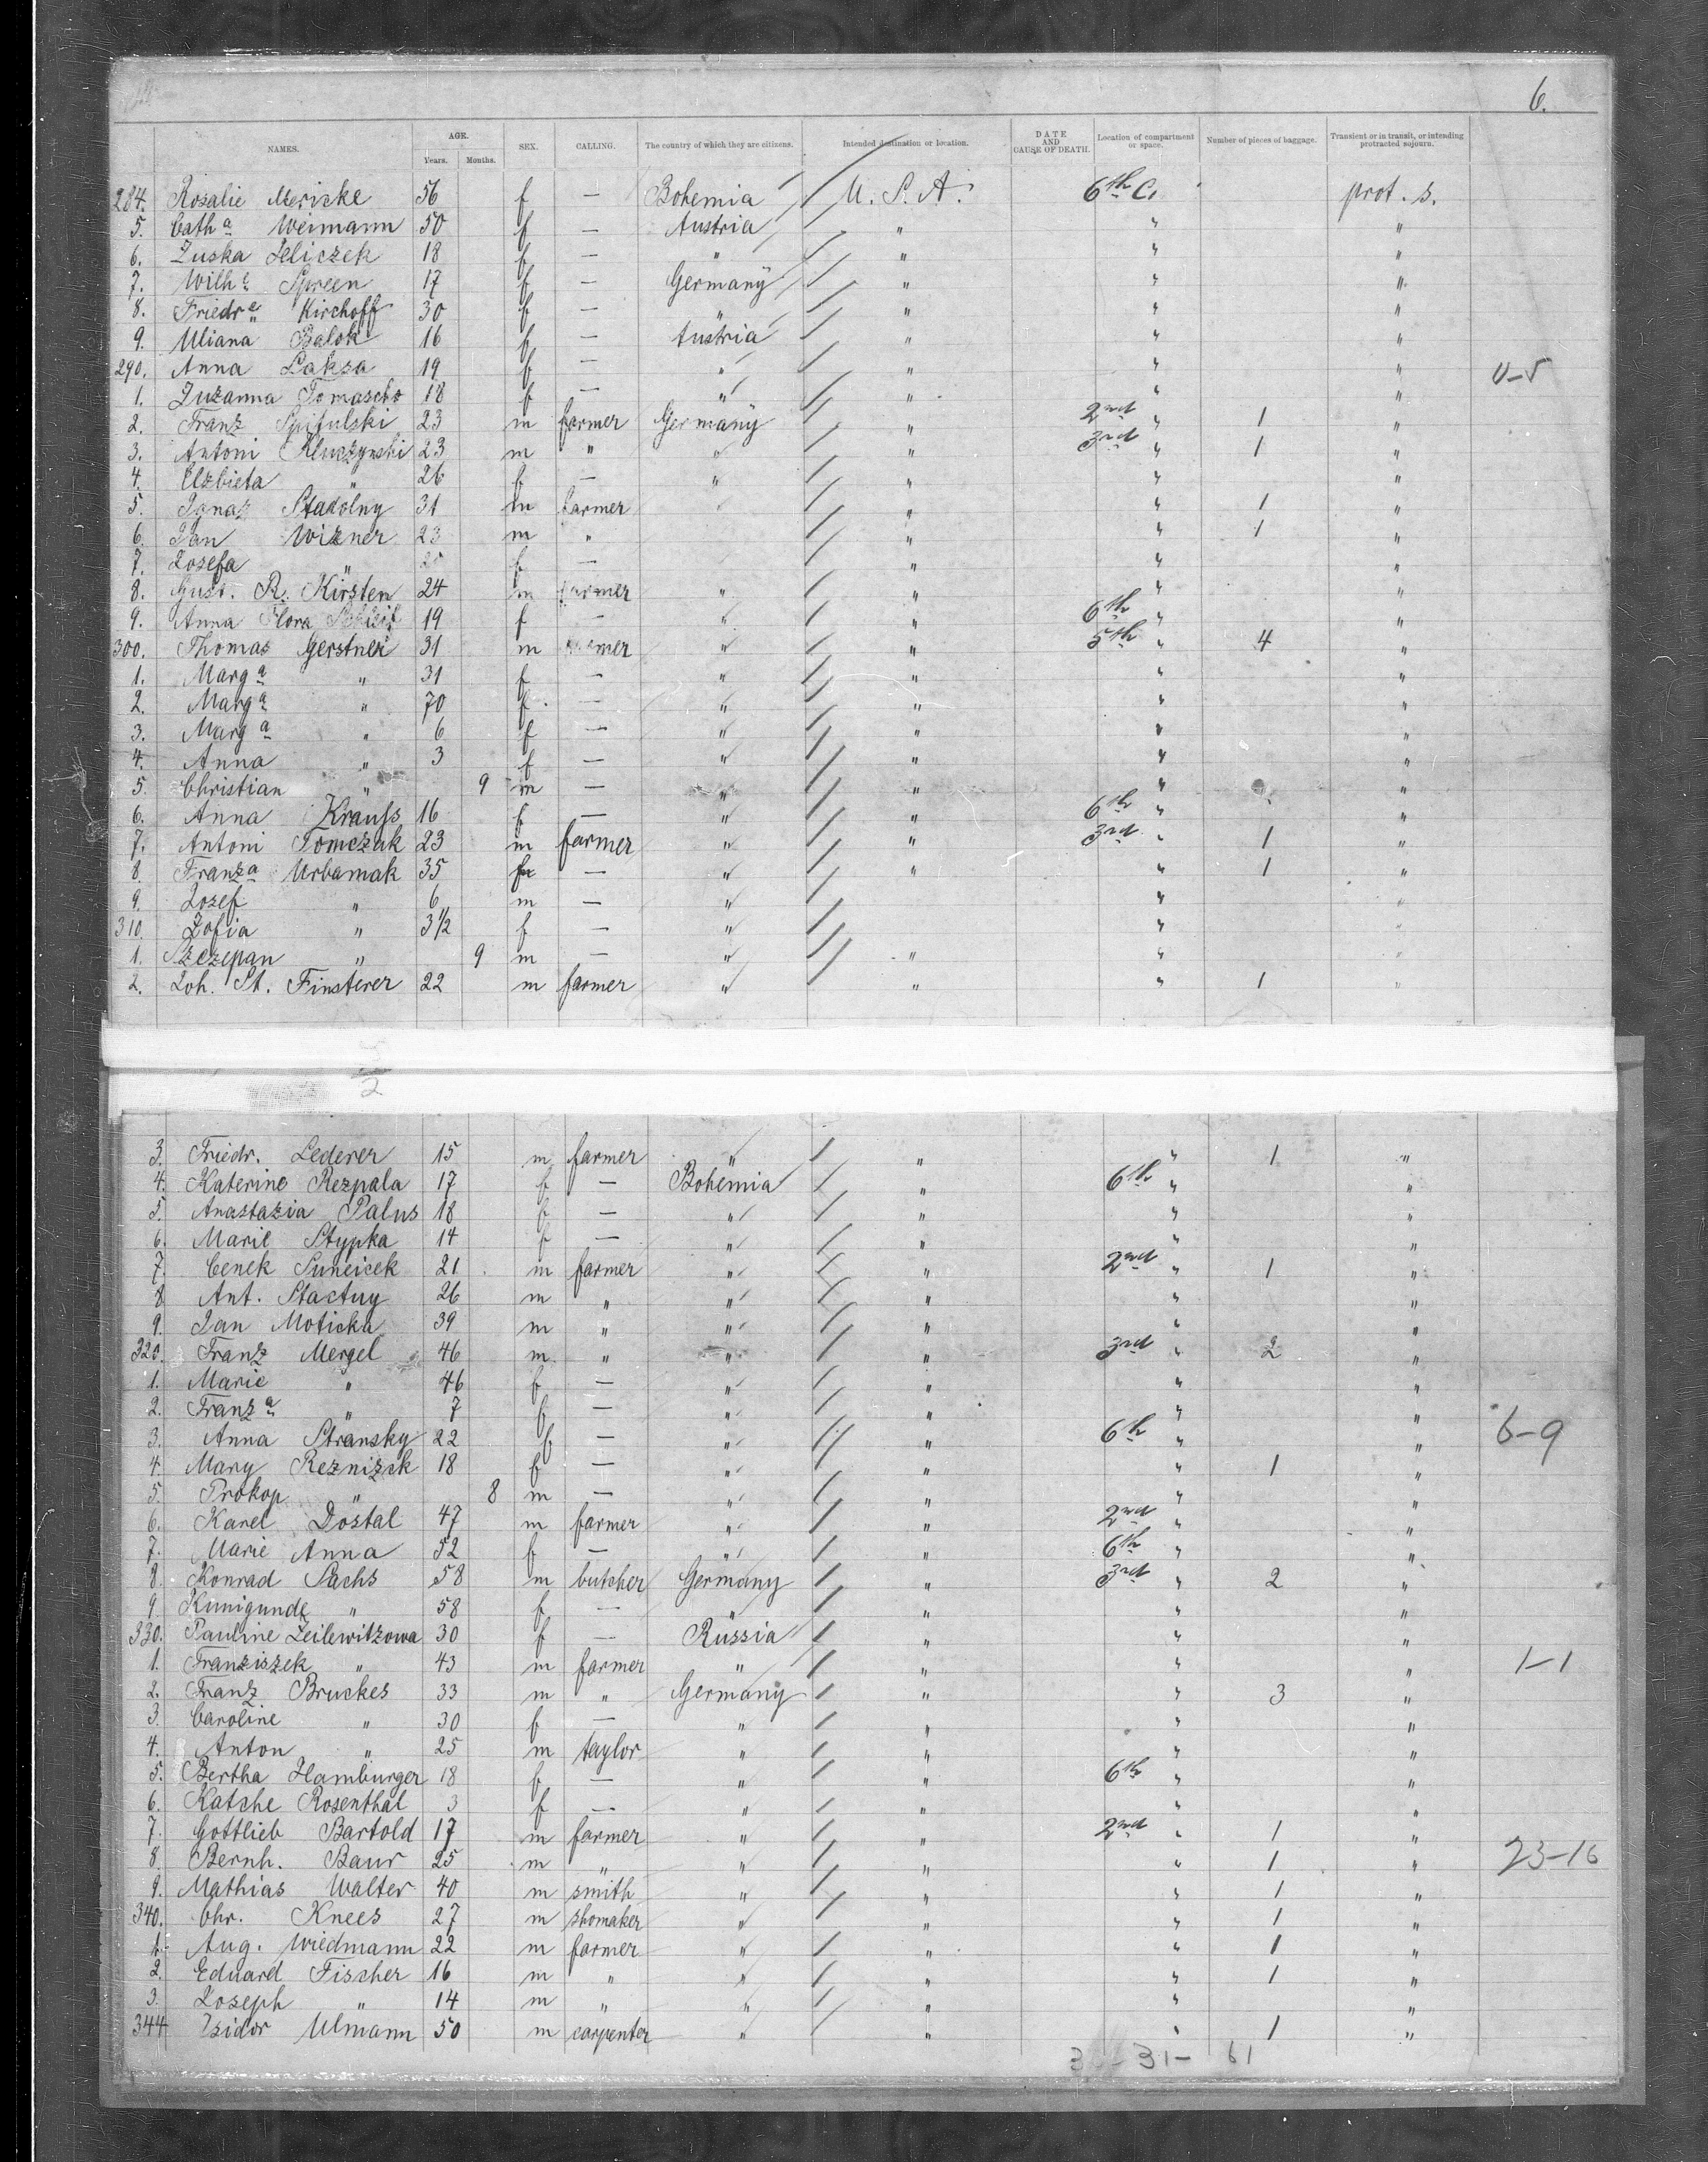 6.
NAMES. AGE. Years. Months. SEX. CALLING. The country of which they are citizens. Intended destination or location. DATE AND CAUSE OF DEATH. Location of compartment or space. Number of pieces of baggage. Transient or in transit, or intending protracted sojourn.
284. Rosalie Mericke 56 f — Bohemia U. S. A. 6th C. prot. s.
5. Cath a Weimann 50 f — Austria " " "
6. Zuska Jeliczek 18 f — " " " "
7. Wilh e Spreen 17 f — Germany " " "
8. Friedr e Kirchoff 30 f — " " " "
9. Uliana Balok 16 f — Austria " " "
290. Anna Laksa 19 f — " " " " 0-5
1. Zuzanna Tomascho 18 f — " " " "
2. Franz Spitulski 23 m farmer Germany " 2nd " 1 "
3. Antoni Kluczynski 23 m " " " 3rd " 1 "
4. Elzbieta " 26 f — " " " "
5. Ignaz Stadolny 31 m farmer " " 1 "
6. Jan Wizner 23 m " " " 1 "
7. Josefa " f — " " "
8. Gust. R. Kirsten 24 m farmer " " " "
9. Anna Flora 19 f — " " 6th " "
300. Thomas Gerstner 31 m farmer " " 5th " 4 "
1. Marg a " 31 f — " " " "
2. Marg a " 70 f — " " " "
3. Marg a " 6 f — " " " "
4. Anna " 3 f — " " " "
5. Christian " 9 m — " " " "
6. Anna Krauss 16 f — " " 6th " "
7. Antoni Tomczak 23 m farmer " " 3rd " 1 "
8. Franz a Urbamak 35 f — " " " 1 "
9. Josef " 6 m — " " "
310. Zofia " 3 1/2 f — " " "
1. Szczepan " 9 m — " " " "
2. Joh. St. Finsterer 22 m farmer " " " 1 "
2
3. Friedr. Lederer 15 m farmer " " " 1 "
4. Katerine Rezpala 17 f — Bohemia " 6th " "
5. Anastazia Palus 18 f — " " " "
6. Marie Stypka 14 f — " " " "
7. Cenek Suncicek 21 m farmer " " 2nd " 1 "
8. Ant. Stactny 26 m " " " " "
9. Jan Moticka 39 m " " " " "
320. Franz Mergel 46 m " " " 3rd " 2 "
1. Marie " 46 f — " " " "
2. Franz a " 7 f — " " " "
3. Anna Stransky 22 f — " " 6th " " 6-9
4. Mary Reznizek 18 f — " " " 1 "
5. Prokop " 8 m — " " " "
6. Karel Dostal 47 m farmer " " 2nd " "
7. Marie Anna 52 f — " " 6th " "
8. Konrad Sachs 58 m butcher Germany " 3rd " 2 "
9. Kunigunde " 58 f — " " " "
330. Pauline Zeilewitzowa 30 f — Russia " " "
1. Franziszek " 43 m farmer " " " " 1-1
2. Franz Bruckes 33 m " Germany " " 3 "
3. Caroline " 30 f — " " " "
4. Anton " 25 m taylor " " " "
5. Bertha Hamburger 18 f — " " 6th " "
6. Katche Rosenthal 3 f — " " " "
7. Gottlieb Bartold 17 m farmer " " 2nd " 1 "
8. Bernh. Baur 25 m " " " " 1 " 23-16
9. Mathias Walter 40 m smith " " " 1 "
340. Chr. Knees 27 m shomaker " " " 1 "
1. Aug. Wiedmann 22 m farmer " " " 1 "
2. Eduard Fischer 16 m " " " " 1 "
3. Joseph " 14 m " " " " "
344 Isidor Ulmann 50 m carpenter " " " 1 "
31- 61